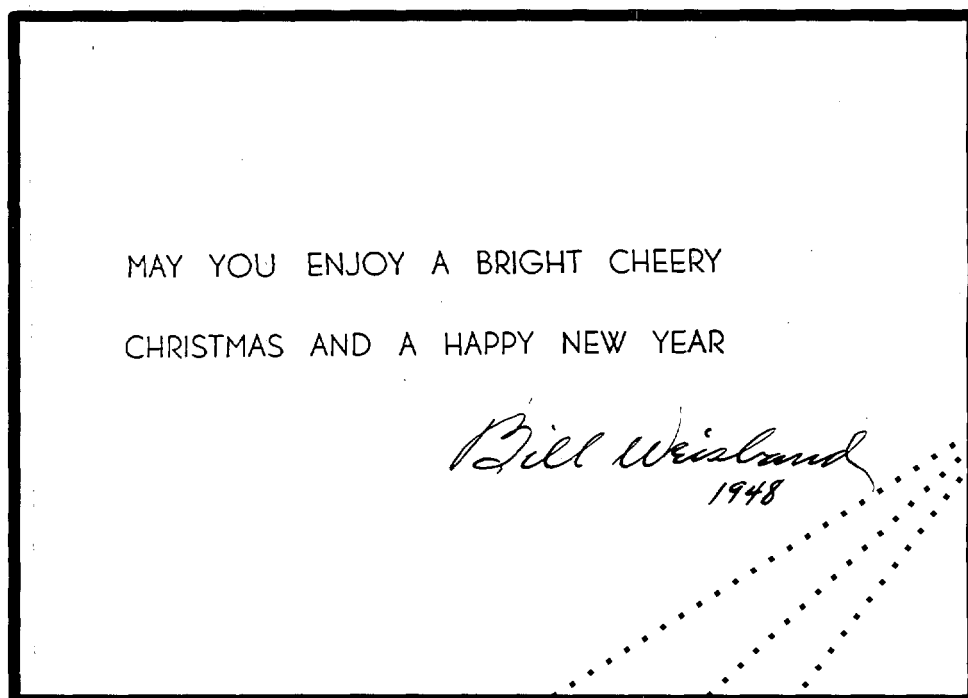 MAY YOU ENJOY A BRIGHT CHEERY
CHRISTMAS AND A HAPPY NEW YEAR
Bill Weisband
1948